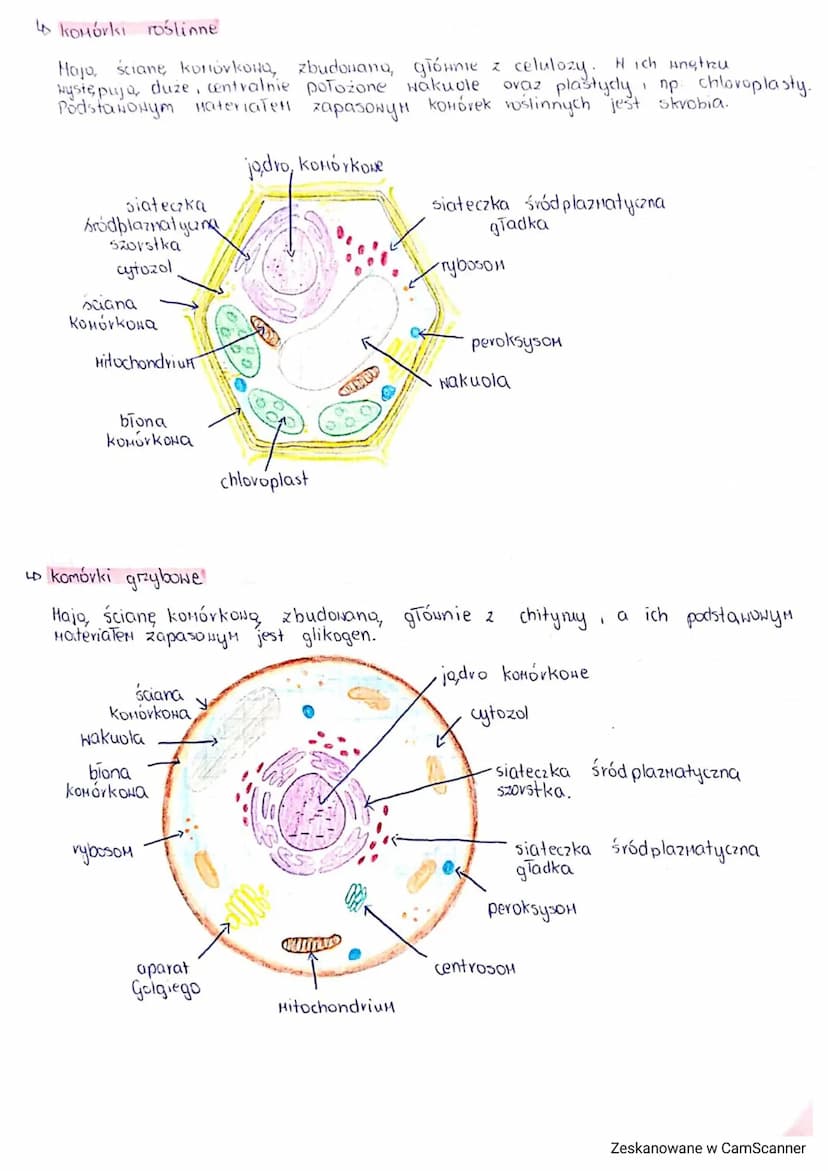 ↳ komórki roślinne
Mają ścianę komórkową, zbudowaną głównie z celulozy. W ich wnętrzu
występują duże, centralnie położone wakuole oraz plastydy, np. chloroplasty.
Podstawowym materiałem zapasowym komórek roślinnych jest skrobia.
jądro komórkowe
siateczka śródplazmatyczna szorstka
siateczka śródplazmatyczna gładka
cytozol
rybosom
ściana komórkowa
peroksysom
mitochondrium
wakuola
błona komórkowa
chloroplast
↳ komórki grzybowe
Mają ścianę komórkową zbudowaną głównie z chityny, a ich podstawowym
materiałem zapasowym jest glikogen.
jądro komórkowe
ściana komórkowa
cytozol
wakuola
błona komórkowa
siateczka śródplazmatyczna szorstka.
rybosom
siateczka śródplazmatyczna gładka
peroksysom
centrosom
aparat Golgiego
mitochondrium
Zeskanowane w CamScanner